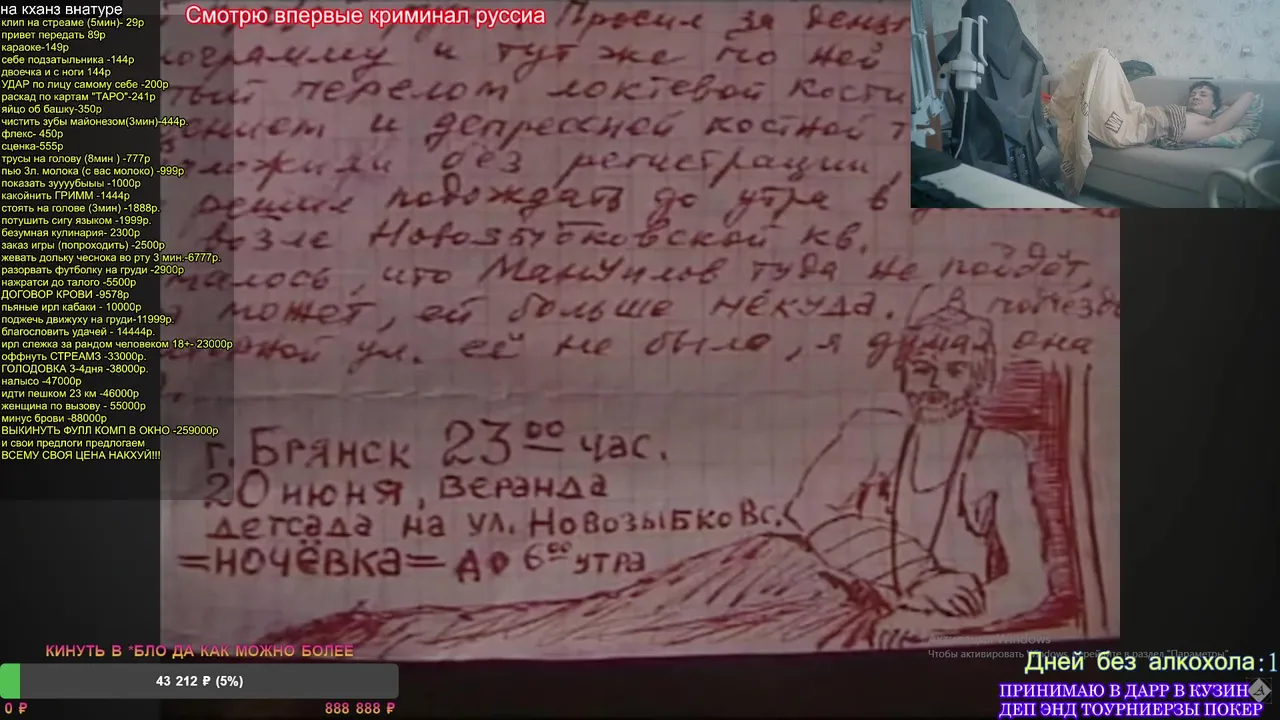 на кханз внатуре
клип на стреаме (5мин)- 29р
привет передать 89р
караоке-149р
себе подзатыльника -144р
двоечка и с ноги 144р
УДАР по лицу самому себе -200р
раскад по картам "ТАРО"-241р
яйцо об башку-350р
чистить зубы майонезом(3мин)-444р.
флекс- 450р
сценка-555р
трусы на голову (8мин ) -777р
пью 3л. молока (с вас молоко) -999р
показать зуууубыыы -1000р
какойнить ГРИММ -1444р
стоять на голове (3мин) -1888р.
потушить сигу языком -1999р.
безумная кулинария- 2300р
заказ игры (попроходить) -2500р
жевать дольку чеснока во рту 3 мин.-6777р.
разорвать футболку на груди -2900р
нажратси до талого -5500р
ДОГОВОР КРОВИ -9578р
пьяные ирл кабаки - 10000р
поджечь движуху на груди-11999р.
благословить удачей - 14444р.
ирл слежка за рандом человеком 18+- 23000р
оффнуть СТРЕАМЗ -33000р.
ГОЛОДОВКА 3-4дня -38000р.
налысо -47000р
идти пешком 23 км -46000р
женщина по вызову - 55000р
минус брови -88000р
ВЫКИНУТЬ ФУЛЛ КОМП В ОКНО -259000р
и свои предлоги предлогаем
ВСЕМУ СВОЯ ЦЕНА НАКХУЙ!!!
Смотрю впервые криминал руссиа
Просил за
и тут же по ней
перелом локтевой кости
и депрессной костной
без регистрации,
решил подождать до утра в
возле Новозыбковской кв.
что Мануилов туда не пойдёт,
может, ей больше некуда. А
ул. её не было, я думал она
г. Брянск 23⁰⁰ час.
20 июня, веранда
детсада на ул. Новозыбковс.
=ночёвка= до 6⁰⁰ утра
КИНУТЬ В *БЛО ДА КАК МОЖНО БОЛЕЕ
43 212 ₽ (5%)
0 ₽ 888 888 ₽
Активация Windows
Чтобы активировать Windows, перейдите в раздел "Параметры".
Дней без алкохола:1
ПРИНИМАЮ В ДАРР В КУЗИН
ДЕП ЭНД ТОУРНИЕРЗЫ ПОКЕР